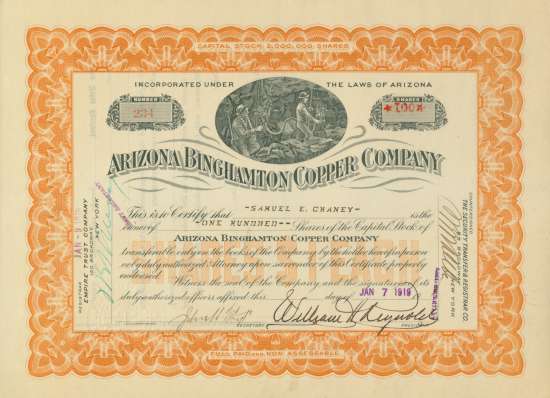 CAPITAL STOCK 2,000,000 SHARES
INCORPORATED UNDER THE LAWS OF ARIZONA
NUMBER
234
SHARES
*100*
ARIZONA BINGHAMTON COPPER COMPANY
This is to Certify that -SAMUEL E. CHANEY- is the
owner of -ONE HUNDRED- Shares of the Capital Stock of
ARIZONA BINGHAMTON COPPER COMPANY
transferable only on the books of the Company by the holder hereof in person
or by duly authorized Attorney upon surrender of this Certificate properly
endorsed.
Witness the seal of the Company and the signatures of its
duly authorized officers affixed this day JAN 7 1919
SECRETARY
William H Reynolds
PRESIDENT
FULL PAID AND NON ASSESSABLE
REGISTERED
JAN -9
EMPIRE TRUST COMPANY
120 BROADWAY
NEW YORK
REGISTRAR
COUNTERSIGNED
THE SECURITY TRANSFER & REGISTRAR CO.
NEW YORK